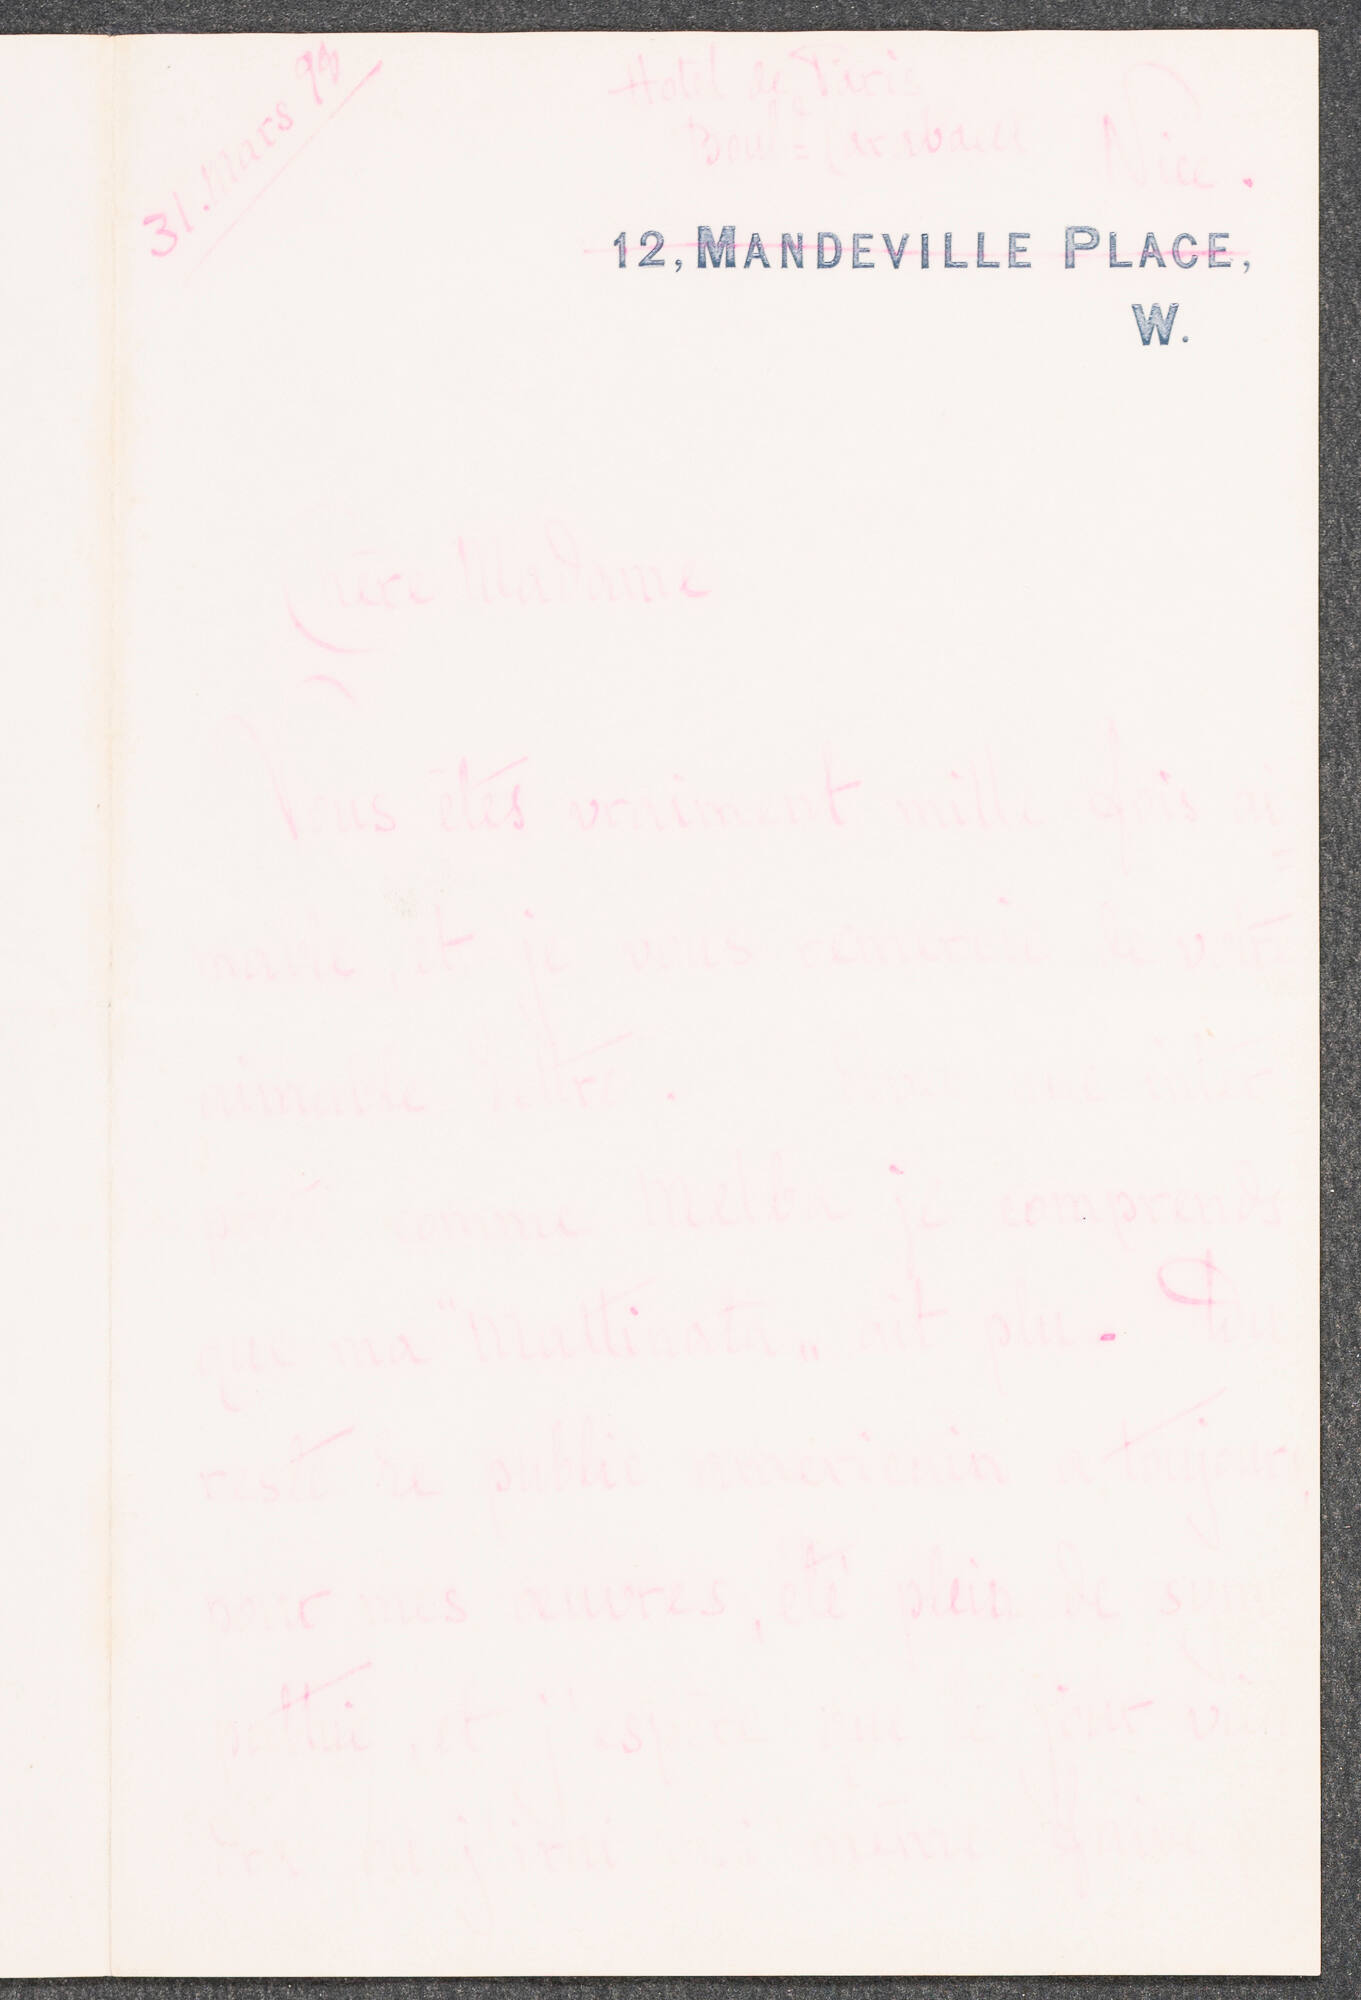 31. Mars 94
Hotel de Paris
Boul= Carabacel Nice.
12, MANDEVILLE PLACE,
W.
Chère Madame
Vous êtes vraiment mille fois ai=
mable, et je vous remercie de votre
aimable lettre. inter
prète comme Melba je comprends
que ma "Mattinata„ ait plu. Du
reste le public américain a toujours,
pour mes œuvres, été plein de sym
pathie, et j'espère que le jour vien
dra ou j'irai moi même faire